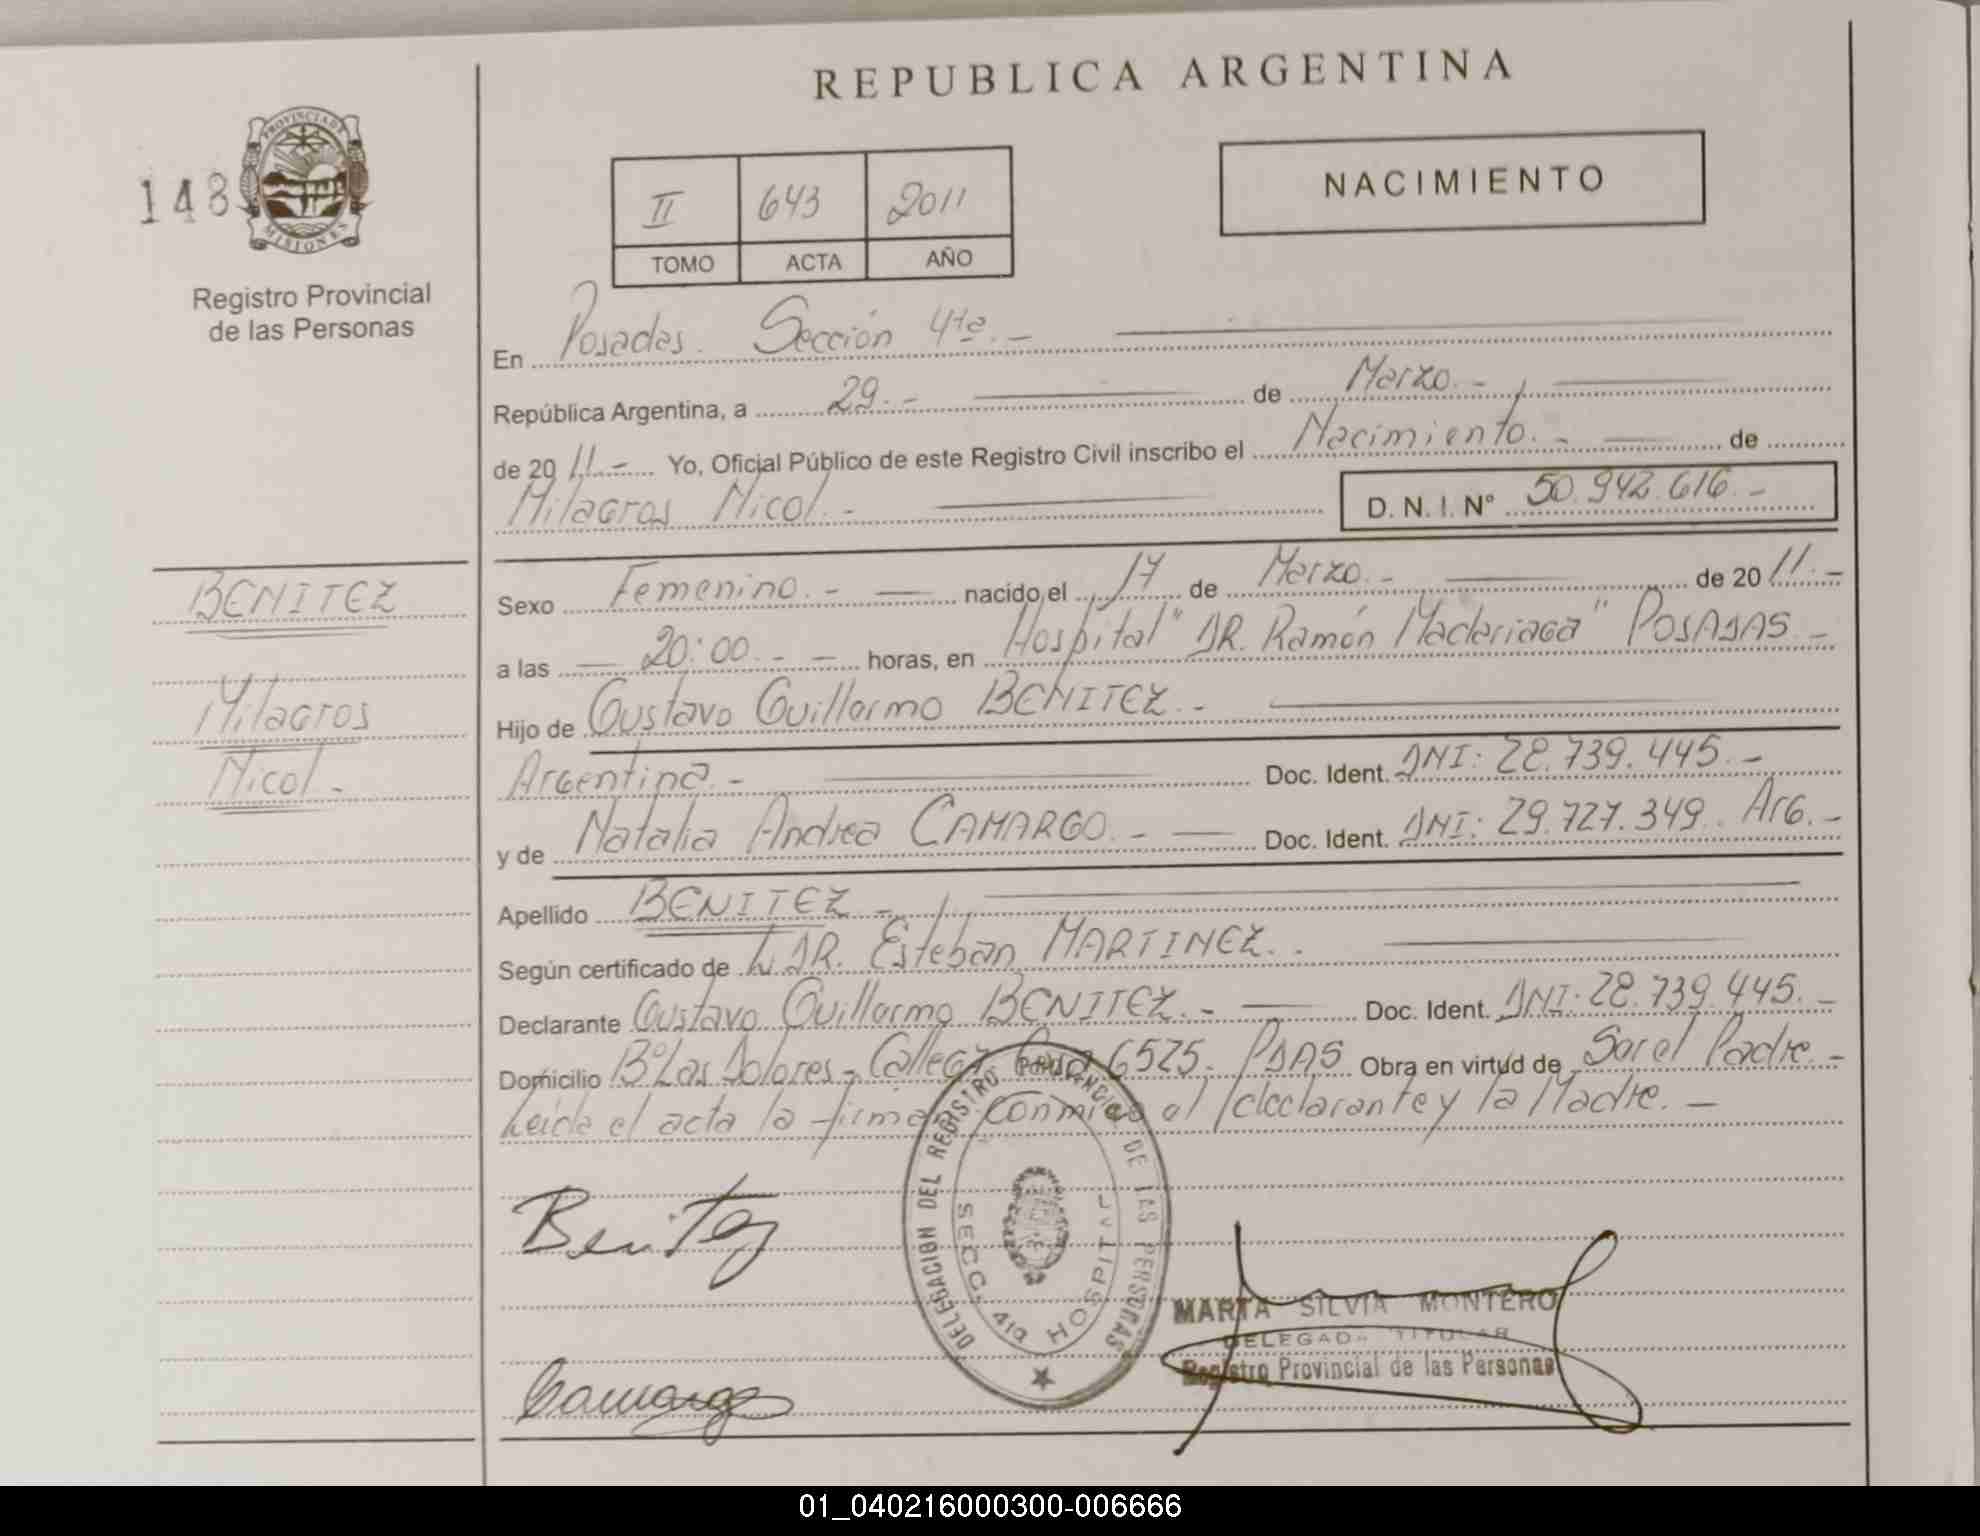 REPUBLICA ARGENTINA
148
PROVINCIA DE MISIONES
Registro Provincial
de las Personas
II 643 2011
TOMO ACTA AÑO
NACIMIENTO
En Posadas. Sección 4ta.-
República Argentina, a 29.- de Marzo.-
de 20 11.- Yo, Oficial Público de este Registro Civil inscribo el Nacimiento.- de
Milagros Nicol.- D. N. I. N° 50.942.616.-
BENITEZ
Milagros
Nicol.-
Sexo Femenino.- nacido el 17 de Marzo.- de 20 11.-
a las 20:00.- horas, en Hospital "DR. Ramón Madariaga" POSADAS.-
Hijo de Gustavo Guillermo BENITEZ.-
Argentina.- Doc. Ident. DNI: 28.739.445.-
y de Natalia Andrea CAMARGO.- Doc. Ident. DNI: 29.727.349. Arg.-
Apellido BENITEZ.-
Según certificado de DR. Esteban MARTINEZ.-
Declarante Gustavo Guillermo BENITEZ.- Doc. Ident. DNI: 28.739.445.-
Domicilio B° Los Dolores- Calle 6525. PDAS Obra en virtud de Ser el Padre.-
Leída el acta la firman conmigo el declarante y la Madre.-
Benitez
DELEGACION DEL REGISTRO PROVINCIAL DE LAS PERSONAS
SECC. 4ta HOSPITAL
MARTA SILVIA MONTERO
DELEGADA TITULAR
Registro Provincial de las Personas
Camargo
01_040216000300-006666